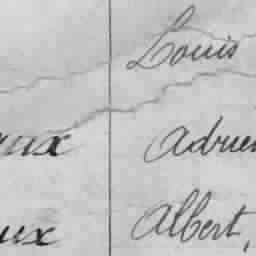 Louis
aux Adrien
ux Albert,